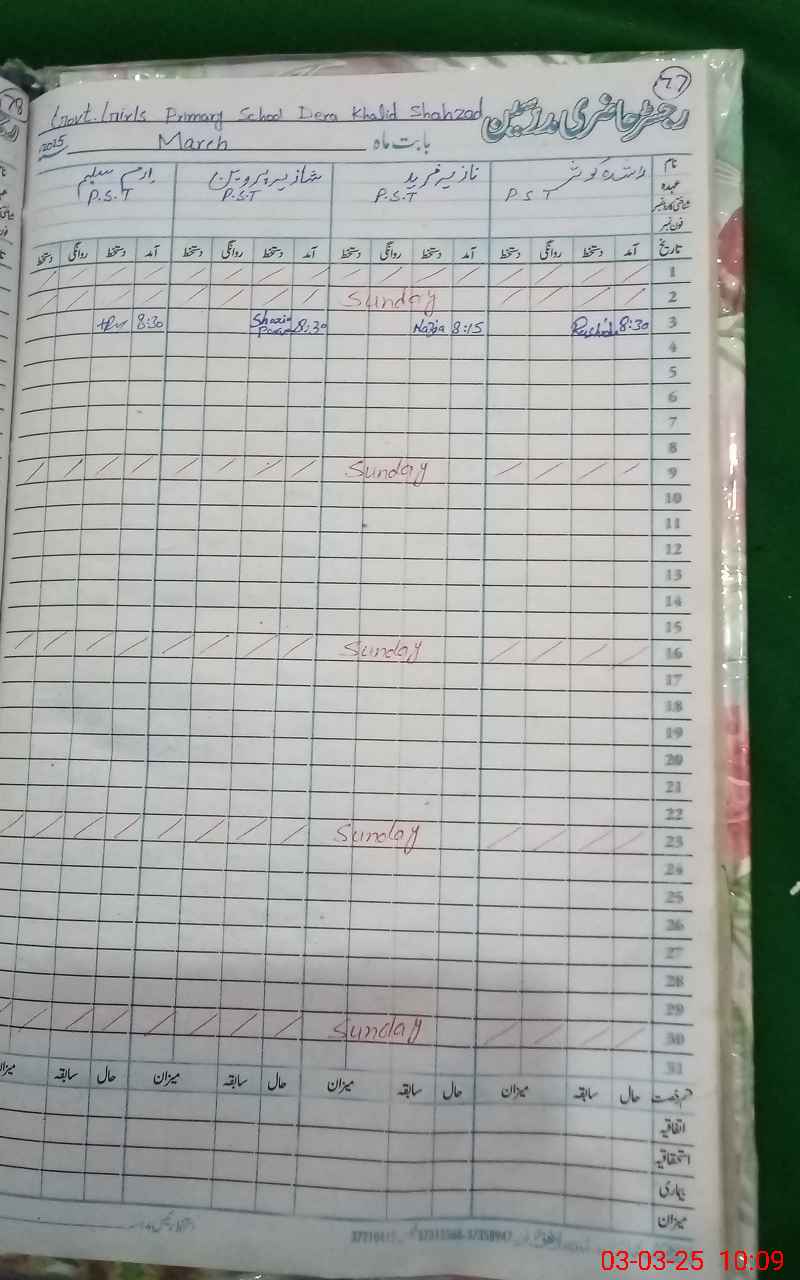 77
78
Govt. Girls Primary School Dera Khalid Shahzad رجسٹر حاضری مدرسین
2025 March بابت ماہ
نام راشدہ کوثر نازیہ فرید شازیہ پروین ارم سلیم
عہدہ P.S.T P.S.T P.S.T P.S.T
شناختی کارڈ نمبر
فون نمبر
تاریخ آمد دستخط روانگی دستخط آمد دستخط روانگی دستخط آمد دستخط روانگی دستخط آمد دستخط روانگی دستخط
1
2 Sunday
3 8:30 Rashida 8:15 Nazia 8:30 Shazia 8:30
4
5
6
7
8
9 Sunday
10
11
12
13
14
15
16 Sunday
17
18
19
20
21
22
23 Sunday
24
25
26
27
28
29
30 Sunday
31
قسم رخصت حال سابقہ میزان حال سابقہ میزان حال سابقہ میزان حال سابقہ میزان
اتفاقیہ
استحقاقیہ
بیماری
میزان
03-03-25 10:09